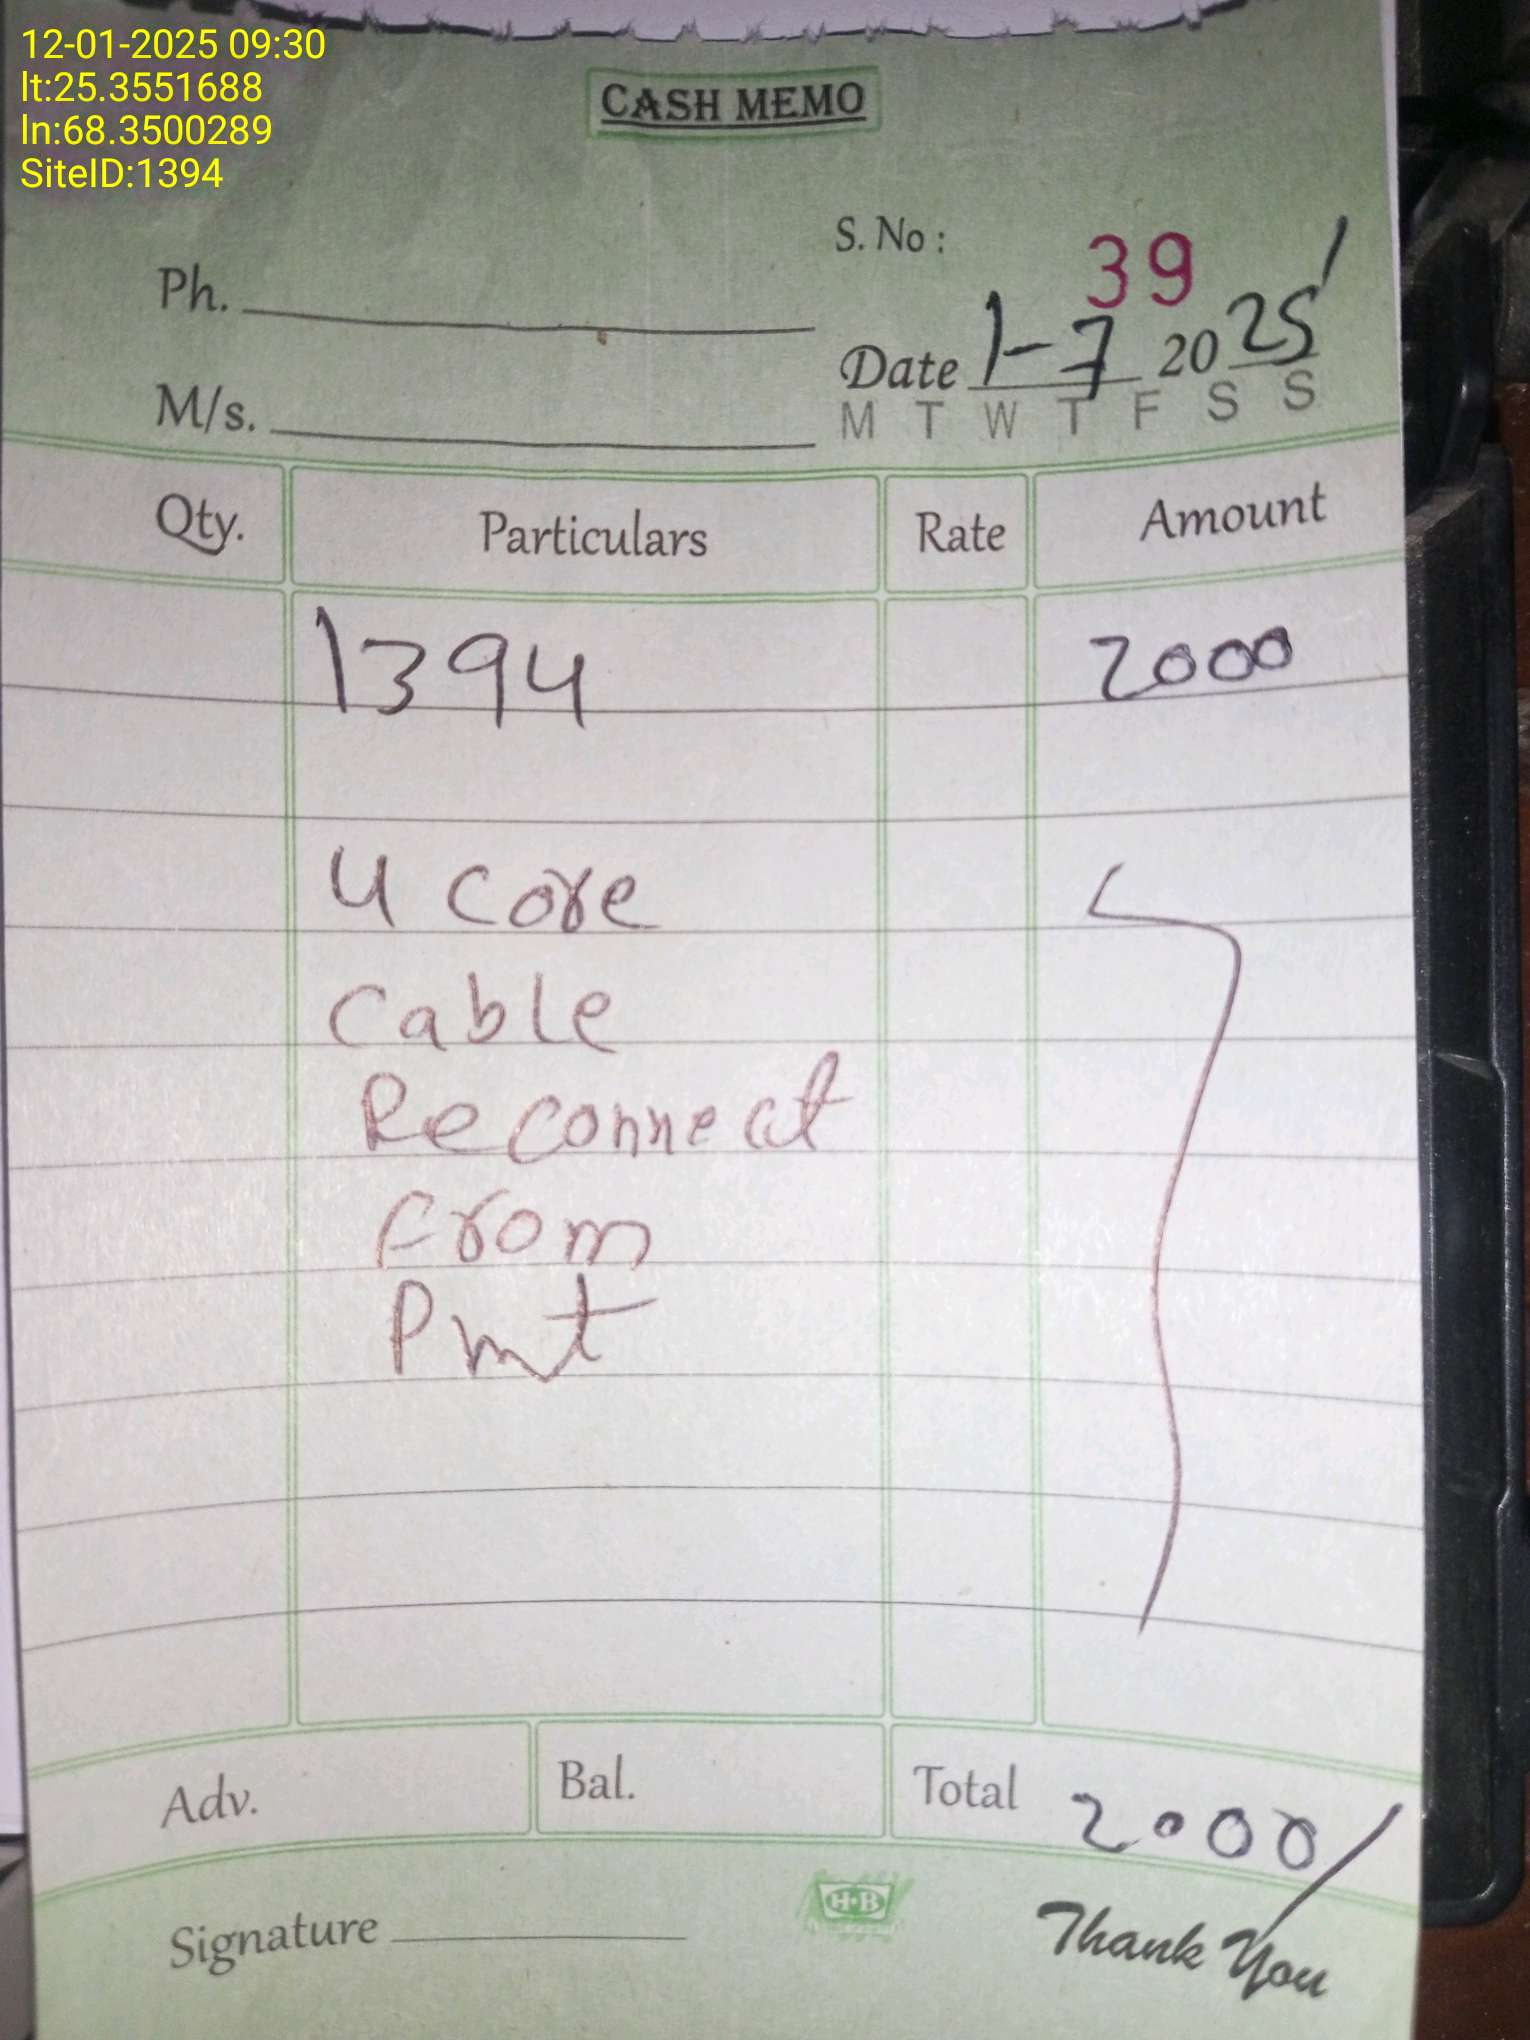 12-01-2025 09:30
lt:25.3551688
ln:68.3500289
SiteID:1394
CASH MEMO
S. No : 39
Ph.
Date 1-7 2025
M/s.
M T W T F S S
Qty. Particulars Rate Amount
1394 2000
4 core
Cable
Reconnect
From
Pmt
Adv. Bal. Total 2000/
H·B
Signature
Thank You